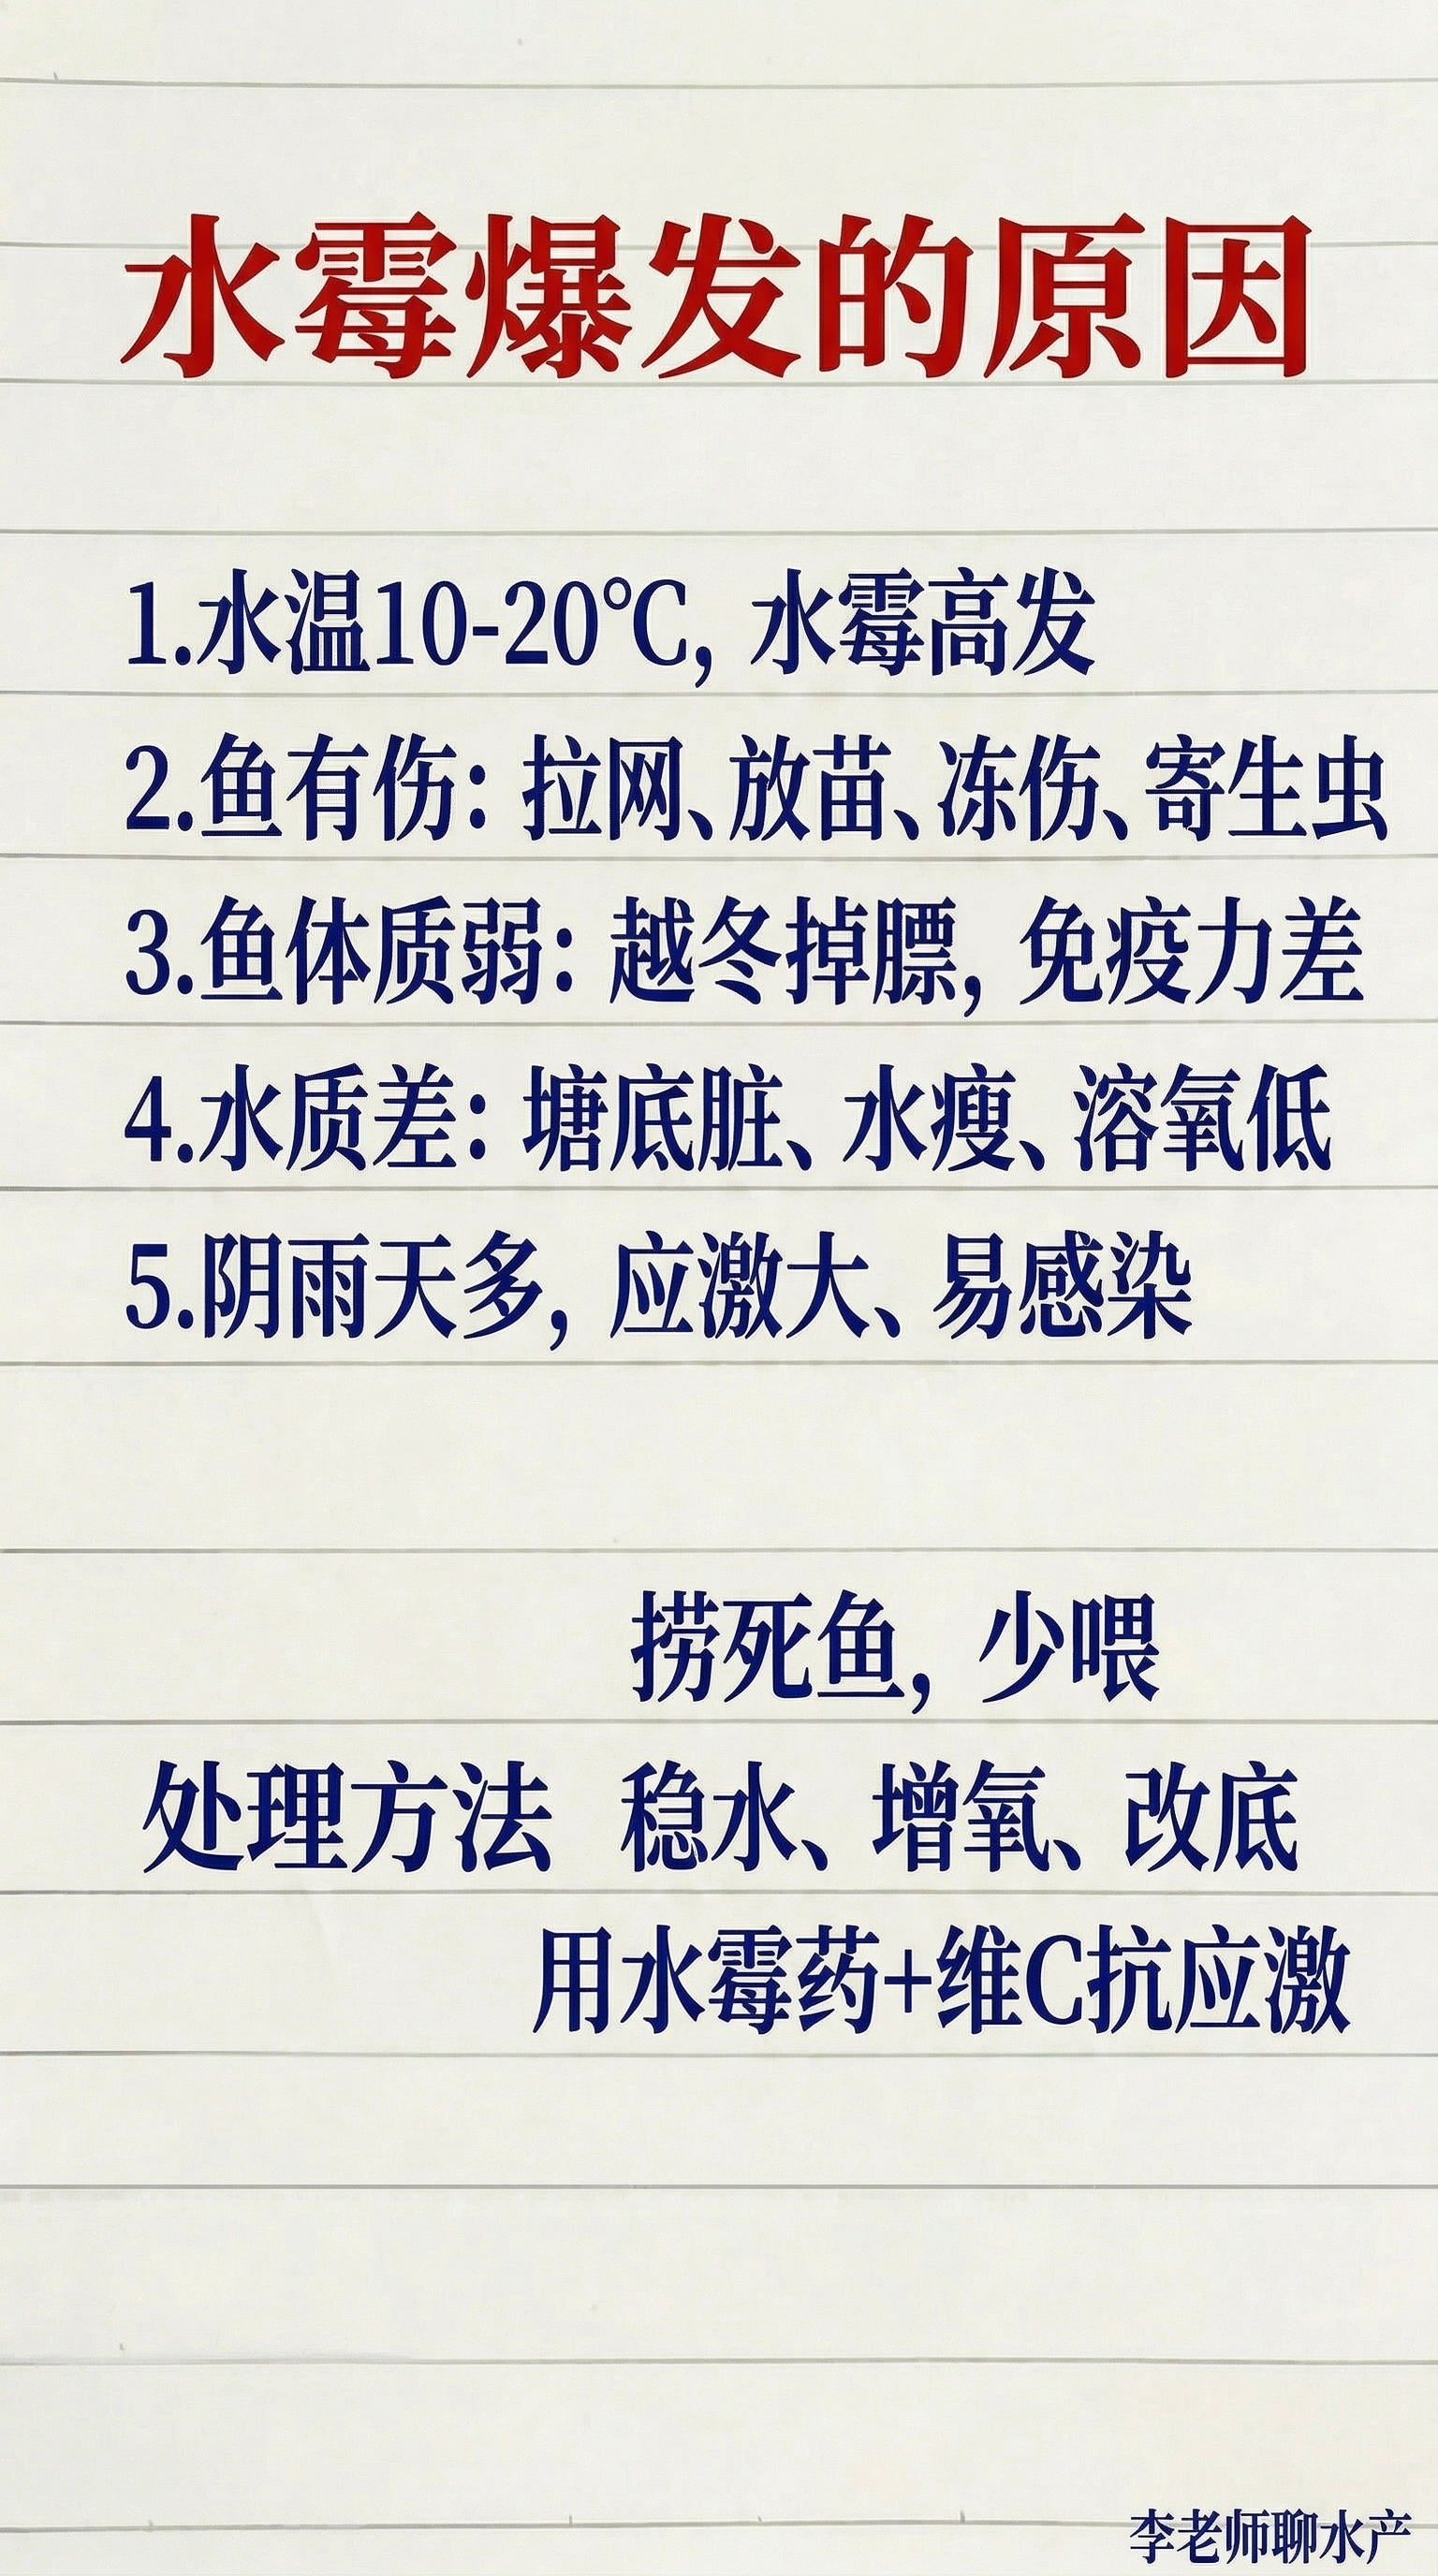 水霉爆发的原因
1.水温10-20℃, 水霉高发
2.鱼有伤: 拉网、放苗、冻伤、寄生虫
3.鱼体质弱: 越冬掉膘, 免疫力差
4.水质差: 塘底脏、水瘦、溶氧低
5.阴雨天多, 应激大、易感染
捞死鱼, 少喂
处理方法 稳水、增氧、改底
用水霉药+维C抗应激
李老师聊水产